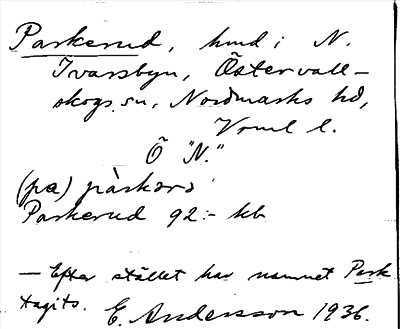 Parkerud, hmd i N.
Ivarsbyn, Östervall-
skogs sn, Nordmarks hd,
Vrml l.
Ö "N."
(pa) pàrkərə
Parkerud 92:- kb
— Efter stället har namnet Park
tagits. E. Andersson 1936.